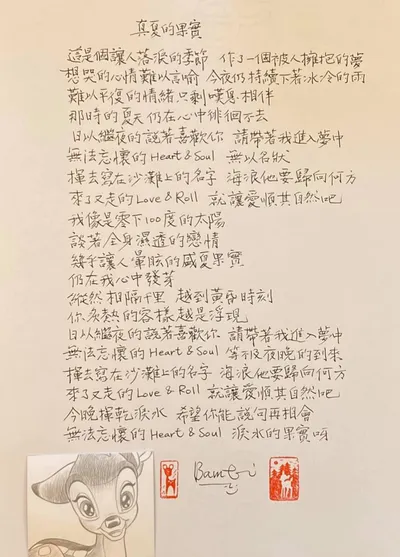 真夏的果實
這是個讓人落淚的季節 作了一個被人擁抱的夢
想哭的心情難以言喻 今夜仍持續下著冰冷的雨
難以平復的情緒 只剩嘆息相伴
那時的夏天仍在心中徘徊不去
日以繼夜的說著喜歡你 請帶著我進入夢中
無法忘懷的 Heart & Soul 無以名狀
揮去寫在沙灘上的名字 海浪他要歸向何方
來了又走的 Love & Roll 就讓愛順其自然吧
我像是零下100度的太陽
談著全身濕透的戀情
幾乎讓人暈眩的盛夏果實
仍在我心中發芽
縱然相隔千里 越到黃昏時刻
你炙熱的容樣越是浮現
日以繼夜的說著喜歡你 請帶著我進入夢中
無法忘懷的 Heart & Soul 等不及夜晚的到來
揮去寫在沙灘上的名字 海浪他要歸向何方
來了又走的 Love & Roll 就讓愛順其自然吧
今晚揮乾淚水 希望你能說句再相會
無法忘懷的 Heart & Soul 淚水的果實呀
Bambi